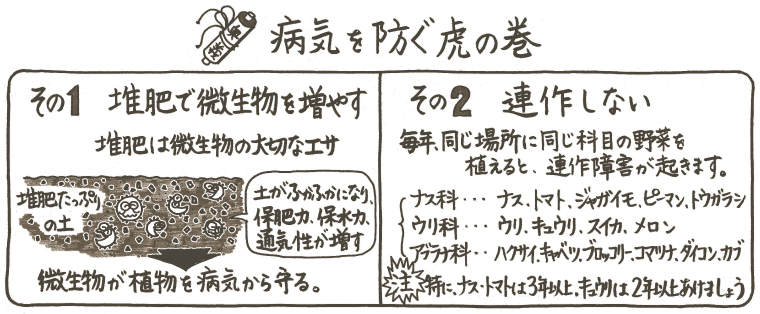 病気を防ぐ虎の巻
その1 堆肥で微生物を増やす
堆肥は微生物の大切なエサ
堆肥たっぷり
の土
土がふかふかになり、
保肥力、保水力、
通気性が増す
微生物が植物を病気から守る。
その2 連作しない
毎年、同じ場所に同じ科目の野菜を
植えると、連作障害が起きます。
ナス科・・・ナス、トマト、ジャガイモ、ピーマン、トウガラシ
ウリ科・・・ウリ、キュウリ、スイカ、メロン
アブラナ科・・ハクサイ、キャベツ、ブロッコリー、コマツナ、ダイコン、カブ
注 特に、ナス・トマトは3年以上、キュウリは2年以上あけましょう